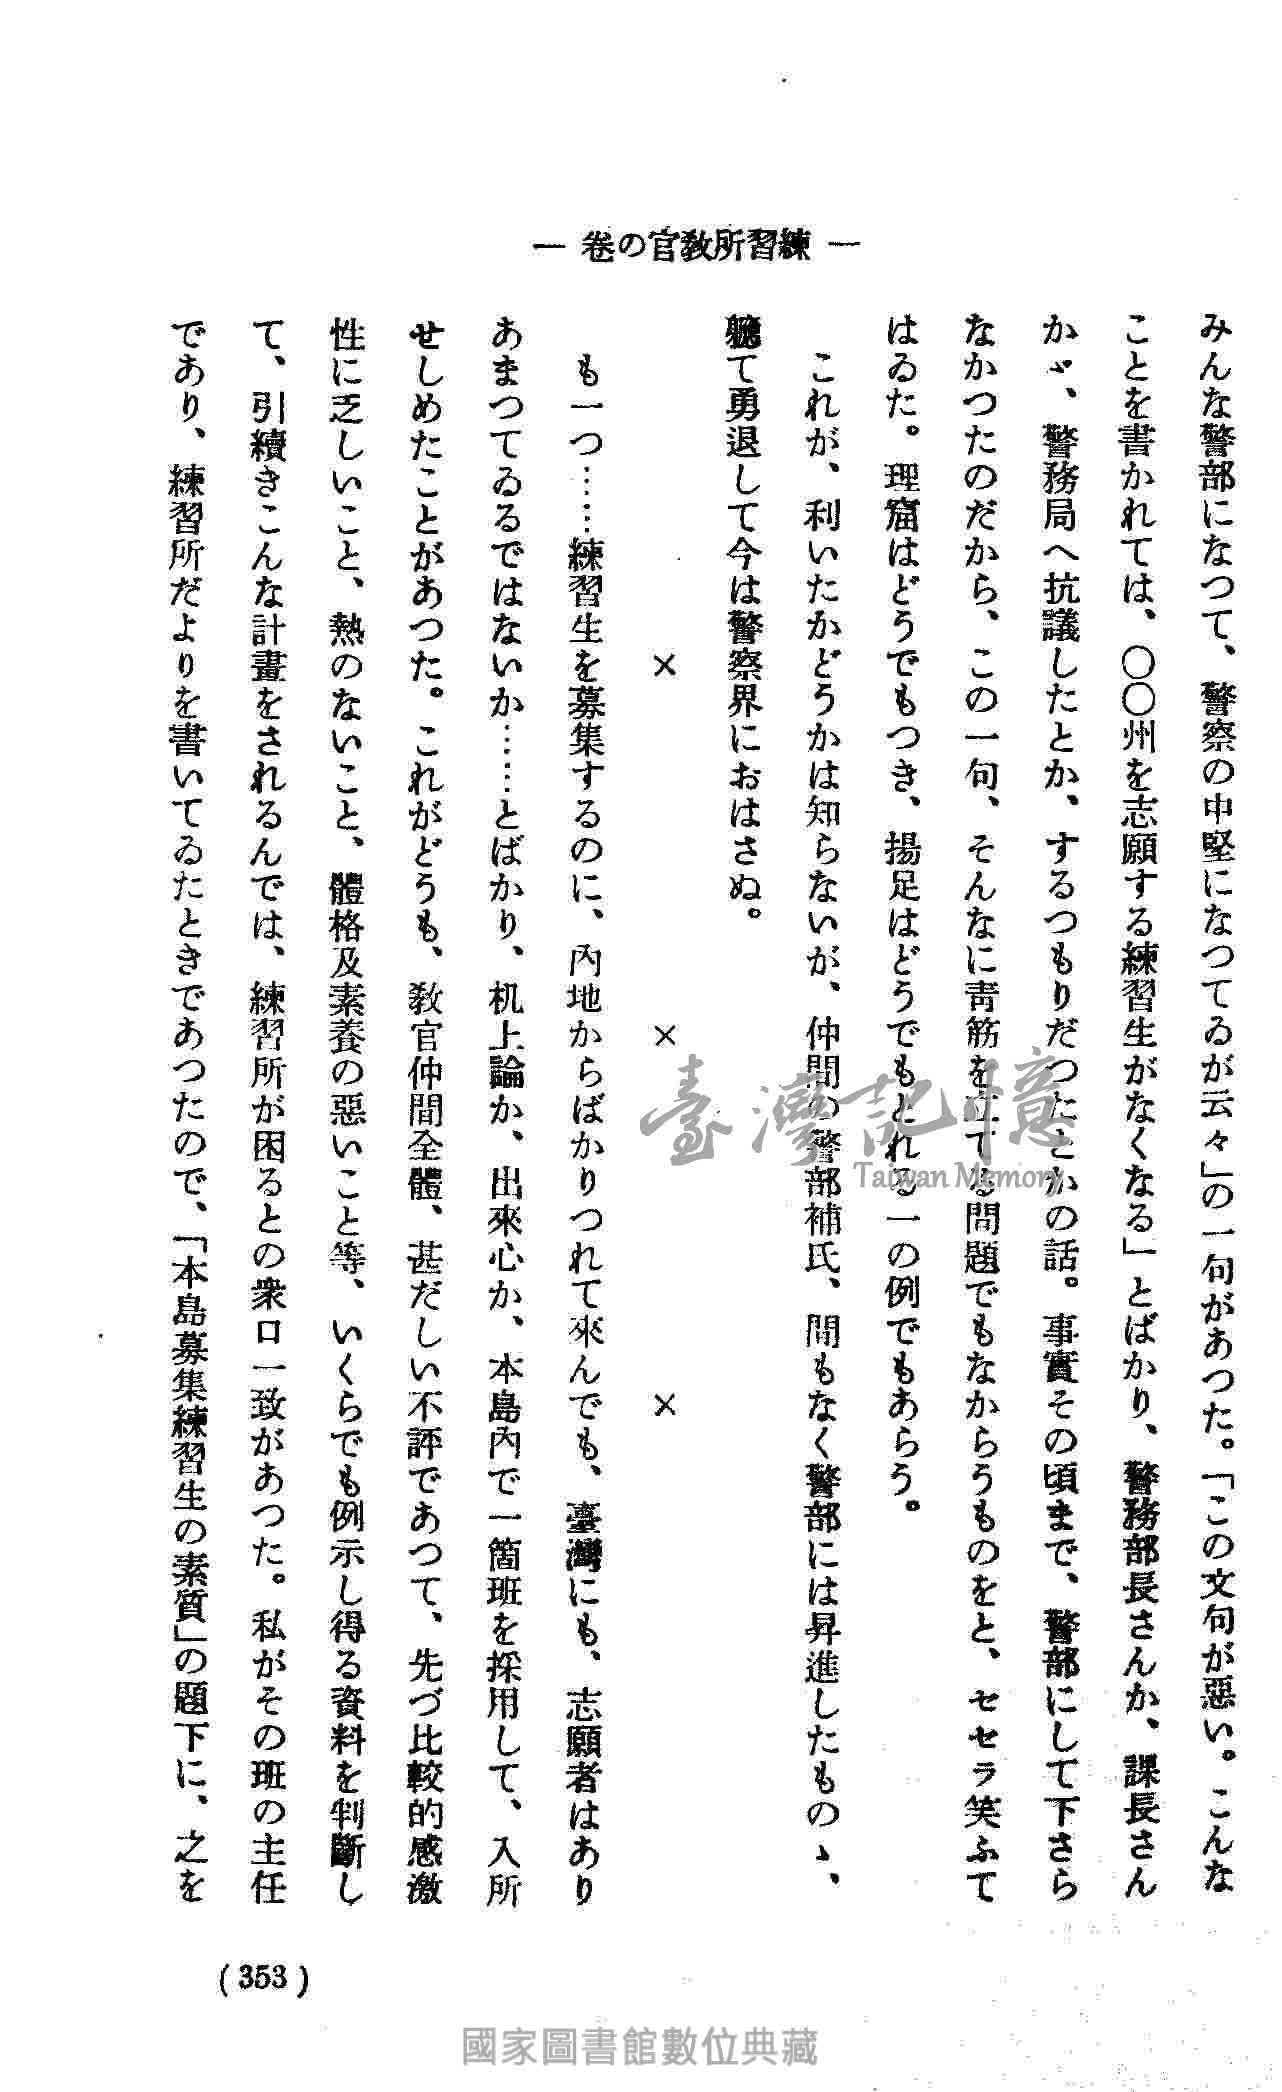 — 練習所教官の卷 —
みんな警部になつて、警察の中堅になつてゐるが云々」の一句があつた。「この文句が惡い。こんな
ことを書かれては、〇〇州を志願する練習生がなくなる」とばかり、警務部長さんか、課長さん
かゞ、警務局へ抗議したとか、するつもりだつたとかの話。事實その頃まで、警部にして下さら
なかつたのだから、この一句、そんなに靑筋を立てる問題でもなからうものをと、セセラ笑ふて
はゐた。理窟はどうでもつき、揚足はどうでもとれる一の例でもあらう。
これが、利いたかどうかは知らないが、仲間の警部補氏、間もなく警部には昇進したものゝ、
軈て勇退して今は警察界におはさぬ。
× × ×
も一つ……練習生を募集するのに、內地からばかりつれて來んでも、臺灣にも、志願者はあり
あまつてゐるではないか……とばかり、机上論か、出來心か、本島內で一箇班を採用して、入所
せしめたことがあつた。これがどうも、教官仲間全體、甚だしい不評であつて、先づ比較的感激
性に乏しいこと、熱のないこと、體格及素養の惡いこと等、いくらでも例示し得る資料を判斷し
て、引續きこんな計畫をされるんでは、練習所が困るとの衆口一致があつた。私がその班の主任
であり、練習所だよりを書いてゐたときであつたので、「本島募集練習生の素質」の題下に、之を
(353)
臺灣記憶
Taiwan Memory
國家圖書館數位典藏